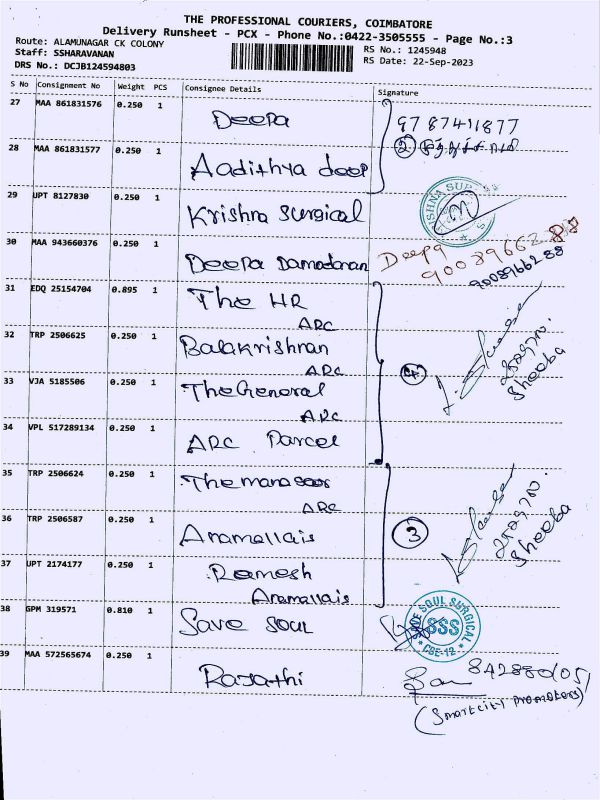 THE PROFESSIONAL COURIERS, COIMBATORE
Delivery Runsheet - PCX - Phone No.:0422-3505555 - Page No.:3
Route: ALAMUNAGAR CK COLONY
RS No.: 1245948
Staff: SSHARAVANAN
RS Date: 22-Sep-2023
DRS No.: DCJB124594803
S No Consignment No Weight PCS Consignee Details Signature
27 MAA 861831576 0.250 1 Deepa 9787411877
28 MAA 861831577 0.250 1 Aadithya deep 2
29 UPT 8127830 0.250 1 Krishna Surgical
30 MAA 943660376 0.250 1 Deepa Damodaran Deepa
9003966288
9003966288
31 EDQ 25154704 0.895 1 The HR
ARC
32 TRP 2506625 0.250 1 Balakrishnan
ARC
4
Sheeba
33 VJA 5185506 0.250 1 The General
ARC
34 VPL 517289134 0.250 1 ARC Parcel
35 TRP 2506624 0.250 1 The manager
ARC
3
Sheeba
36 TRP 2506587 0.250 1 Aramallais
37 UPT 2174177 0.250 1 Ramesh
Aramallais
38 GPM 319571 0.810 1 Save Soul
SAVE SOUL SURGICAL
SSS
CBE-12
39 MAA 572565674 0.250 1 Rajathi
(Smartcity Promoters)